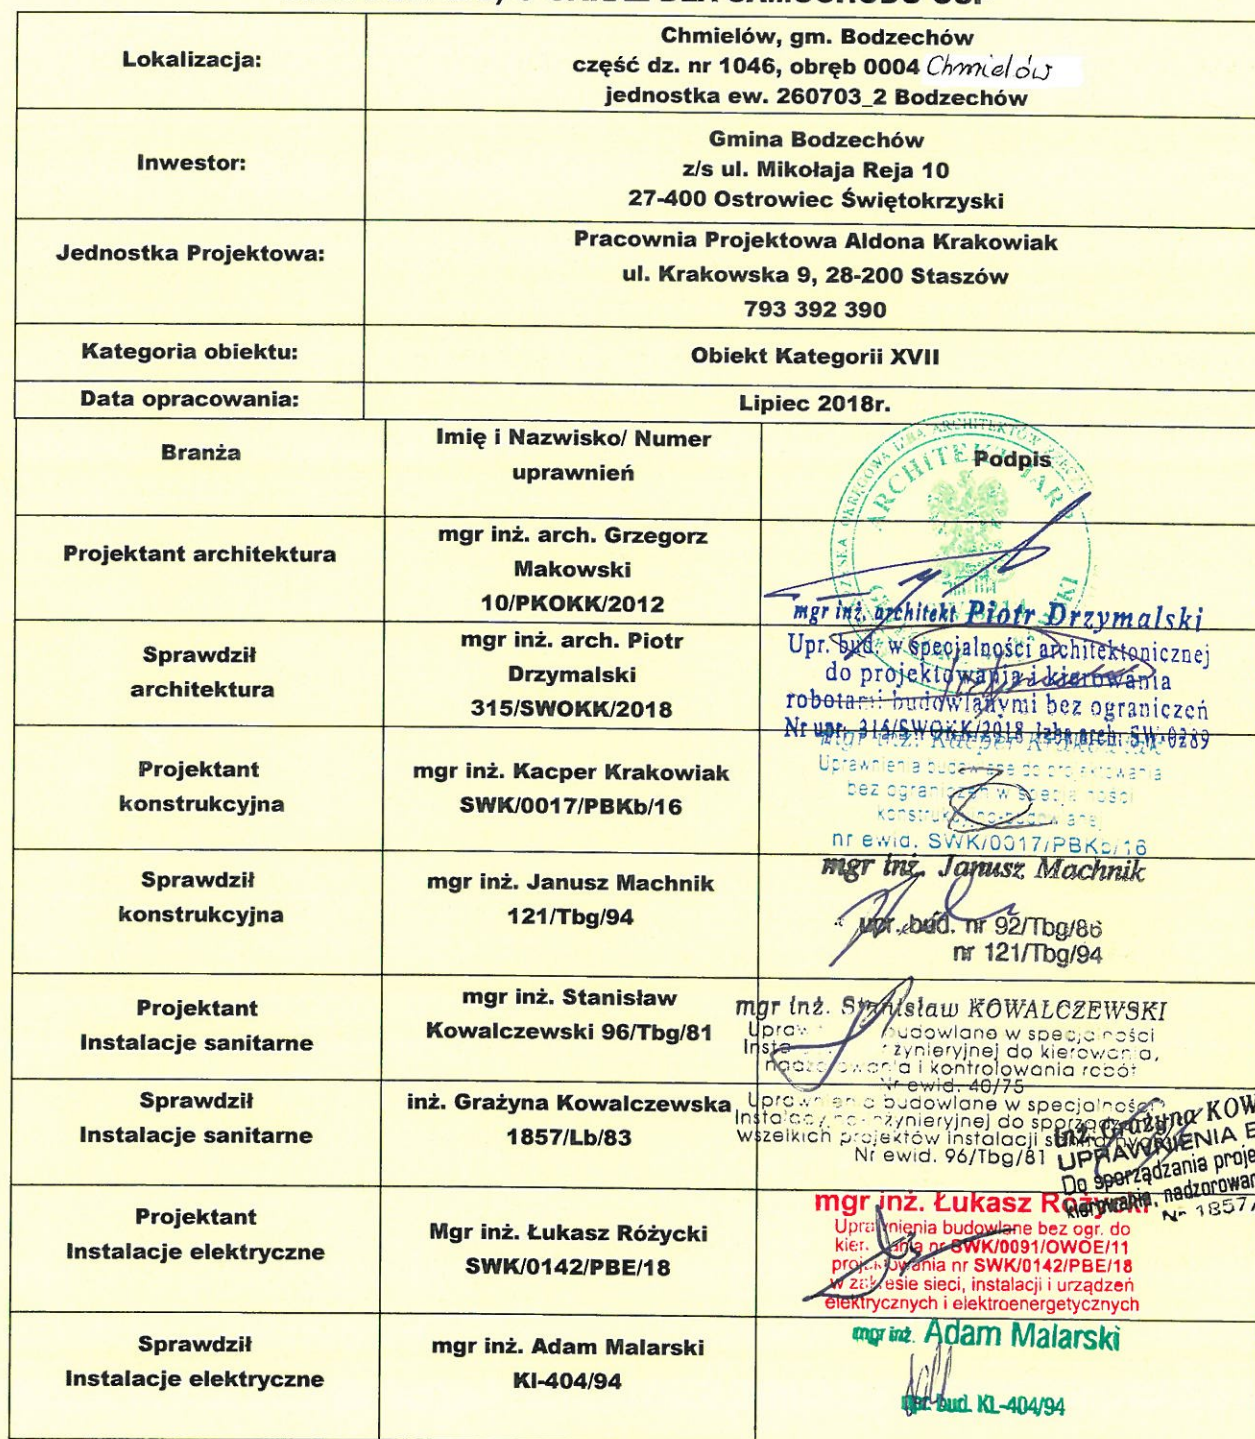 DLA SAMOCHODU OSP
Lokalizacja:
Chmielów, gm. Bodzechów
część dz. nr 1046, obręb 0004 Chmielów
jednostka ew. 260703_2 Bodzechów
Inwestor:
Gmina Bodzechów
z/s ul. Mikołaja Reja 10
27-400 Ostrowiec Świętokrzyski
Jednostka Projektowa:
Pracownia Projektowa Aldona Krakowiak
ul. Krakowska 9, 28-200 Staszów
793 392 390
Kategoria obiektu:
Obiekt Kategorii XVII
Data opracowania:
Lipiec 2018r.
Branża
Imię i Nazwisko/ Numer
uprawnień
Podpis
Projektant architektura
mgr inż. arch. Grzegorz
Makowski
10/PKOKK/2012
Sprawdził
architektura
mgr inż. arch. Piotr
Drzymalski
315/SWOKK/2018
mgr inż. architekt Piotr Drzymalski
Upr. bud. w specjalności architektonicznej
do projektowania i kierowania
robotami budowlanymi bez ograniczeń
Nr upr. 315/SWOKK/2018 Izba arch. SW-0289
Projektant
konstrukcyjna
mgr inż. Kacper Krakowiak
SWK/0017/PBKb/16
mgr inż. Kacper Krakowiak
Uprawnienia budowlane do projektowania
bez ograniczeń w specjalności
konstrukcyjno-budowlanej
nr ewid. SWK/0017/PBKb/16
Sprawdził
konstrukcyjna
mgr inż. Janusz Machnik
121/Tbg/94
mgr inż. Janusz Machnik
upr. bud. nr 92/Tbg/86
nr 121/Tbg/94
Projektant
Instalacje sanitarne
mgr inż. Stanisław
Kowalczewski 96/Tbg/81
mgr inż. Stanisław KOWALCZEWSKI
budowlane w specjalności
do kierowania,
i kontrolowania robót
Nr ewid. 40/75
Uprawnienia budowlane w specjalności
do sporządzania
wszelkich projektów instalacji
Nr ewid. 96/Tbg/81
Sprawdził
Instalacje sanitarne
inż. Grażyna Kowalczewska
1857/Lb/83
inż. Grażyna KOW
UPRAWNIENIA B
Do sporządzania proje
kierowania, nadzorowan
Nr 1857/
Projektant
Instalacje elektryczne
Mgr inż. Łukasz Różycki
SWK/0142/PBE/18
mgr inż. Łukasz Różycki
Uprawnienia budowlane bez ogr. do
kierowania nr SWK/0091/OWOE/11
projektowania nr SWK/0142/PBE/18
w zakresie sieci, instalacji i urządzeń
elektrycznych i elektroenergetycznych
Sprawdził
Instalacje elektryczne
mgr inż. Adam Malarski
KI-404/94
mgr inż. Adam Malarski
upr. bud. KL-404/94